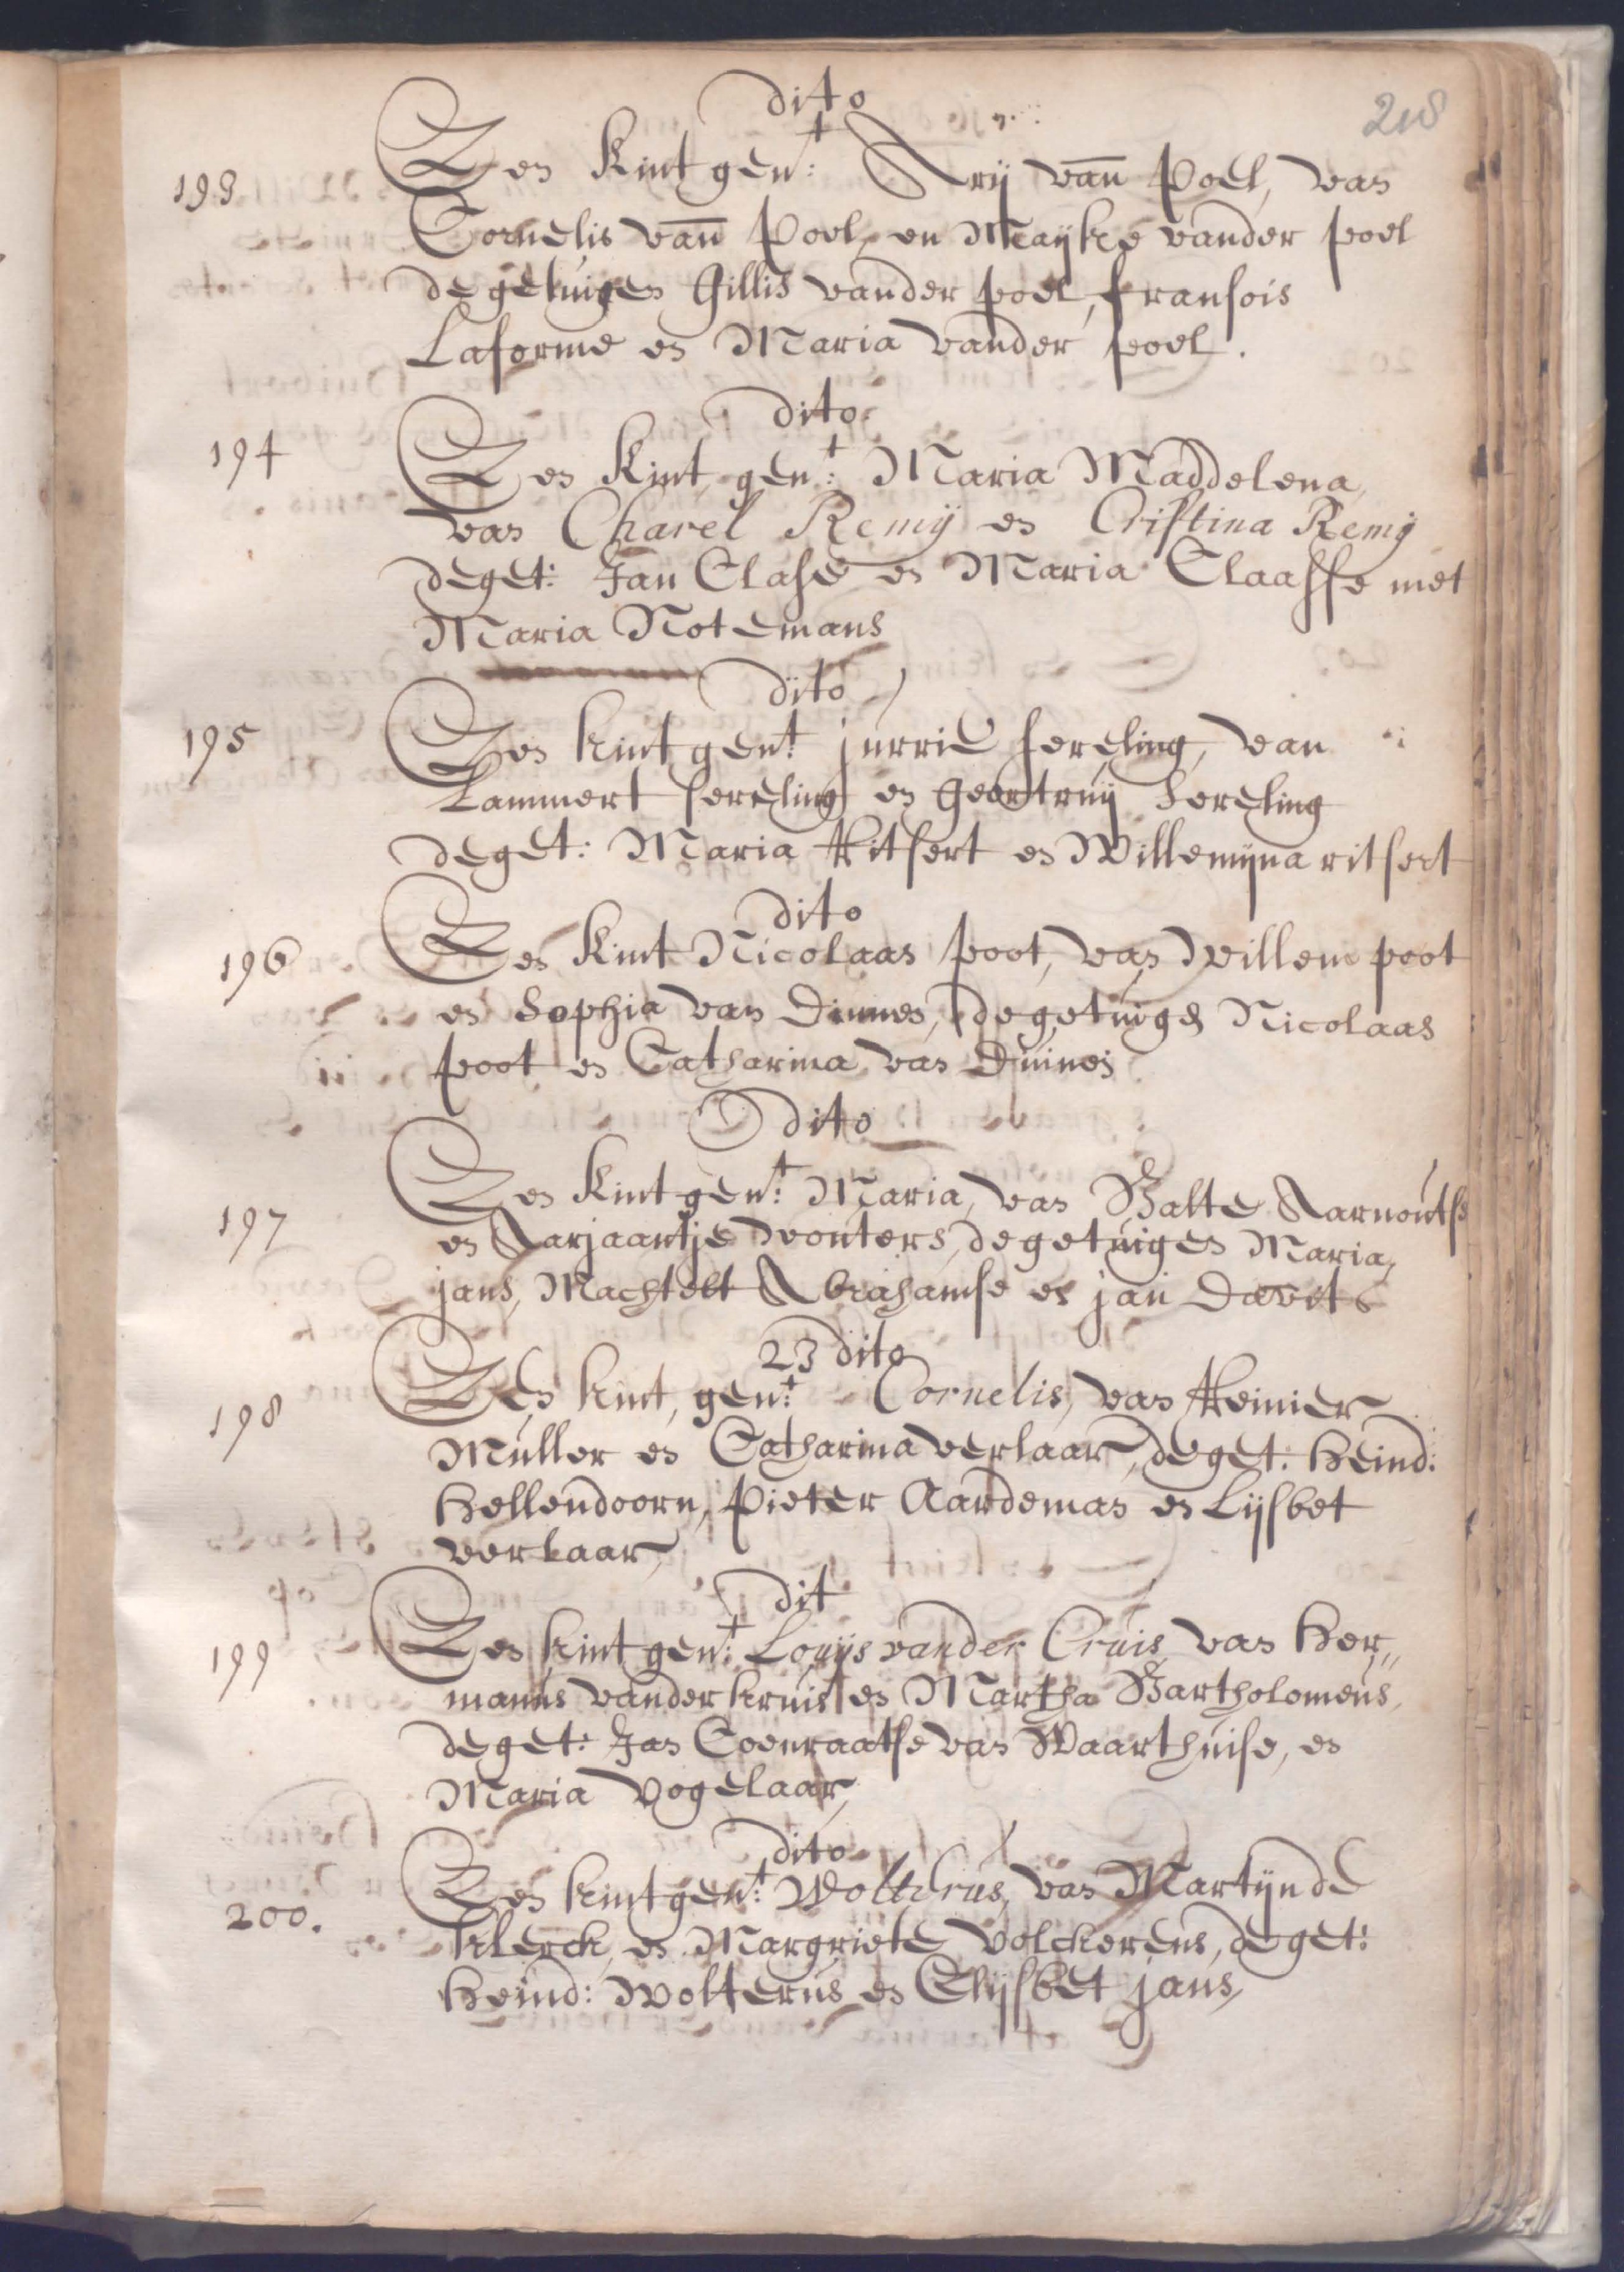 218
dito
193 Een Kint gen:t Arij van Poel, van
Cornelis van Poel, en Maijke vander poel
de getuigen Gillis vander poel, fransois
Laforme en Maria vander poel.
dito
194 Een Kint gen:t Maria Maddelena,
van Charel Remij en Cristina Remij
deget: Jan Clase en Maria Claasse met
Maria Notemans
dito
195 Een kint gen:t jurrie sereling, van
Lammert sereling en Geertruij Sereling
deget: Maria Ritsert en Willemijna ritsert
dito
196 Een Kint Nicolaas poot, van Willem poot
en Sophia van Dinnes, de getuigen Nicolaas
poot en Catharina van
Dito
197 Een Kint gen:t Maria, van Balte Aarnoutse
en Aarjaantje Wouters, de getuigen Maria
jans, Machtelt Abrahamse en jan Davits
23 dito
198 Een kint, gen:t Cornelis, van Reinier
Muller en Catharina verlaar, deget: Heind:
Hellendoorn, Pieter Aardeman en Lijsbet
verlaar,
dit
199 Een kint gen:t Louijs vander Cruis van Her„
manus vander kruis en Martha Bartholomeus,
deget: Jan Coenraatse van Waarthuise, en
Maria Vogelaar,
dito
200. Een kint gen:t Wolterus, van Martijn de
klerck, en Margriete Volckerens, deget:
Heind: Wolterus en Elijsbet jans,